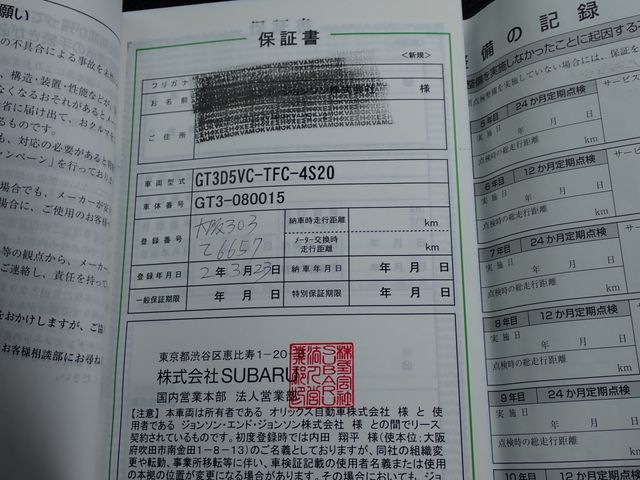 願い
の不具合による事故を未然
構造・装置・性能などが、
なくなるおそれがあると
省に届け出て、おクルマを
るものです。
も、対応の必要があると
ンペーン」を行っており
場合でも、メーカーが
場合に、ご使用のお客様
等の観点から、メーカー
ご連絡し、責任を持って
をおかけしますが、ご
お客様相談部にお尋ね
保証書
<新規>
フリガナ
お名前
ジョンソン株式会社
様
ご住所
車両型式
GT3D5VC-TFC-4S20
車体番号
GT3-080015
登録番号
大阪303
て6657
納車時走行距離
km
メーター交換時
走行距離
km
登録年月日
2年3月23日
納車年月日
年 月 日
一般保証期限
年 月 日
特別保証期限
年 月 日
東京都渋谷区恵比寿1-20-
株式会社SUBARU
国内営業本部 法人営業部
【注意】本車両は所有者である オリックス自動車株式会社 様 と 使
用者である ジョンソン・エンド・ジョンソン株式会社 様 との間でリース
契約されているものです。初度登録時では内田 翔平 様(使本位:大阪
府吹田市南金田1-8-13)のご名義としておりますが、同社の組織変
更や転勤、事業所移転等に伴い、車検証記載の使用者名義または使用
の本拠の位置が変更になる場合があります。その場合においても、ジョ
整備の記録
整備を実施しなかったことに起因する
点検整備を実施していない場合には、保証を
5年目
24か月定期点検
サービ
実施日
年 月 日
点検時の総走行距離
km
6年目
12か月定期点検
サービ
実施日
年 月 日
点検時の総走行距離
km
7年目
24か月定期点検
サー
実施日
年 月 日
点検時の総走行距離
km
8年目
12か月定期点検
サー
実施日
年 月 日
点検時の総走行距離
km
9年目
24か月定期点検
サー
実施日
年 月 日
点検時の総走行距離
km
10年目
12か月定期点検